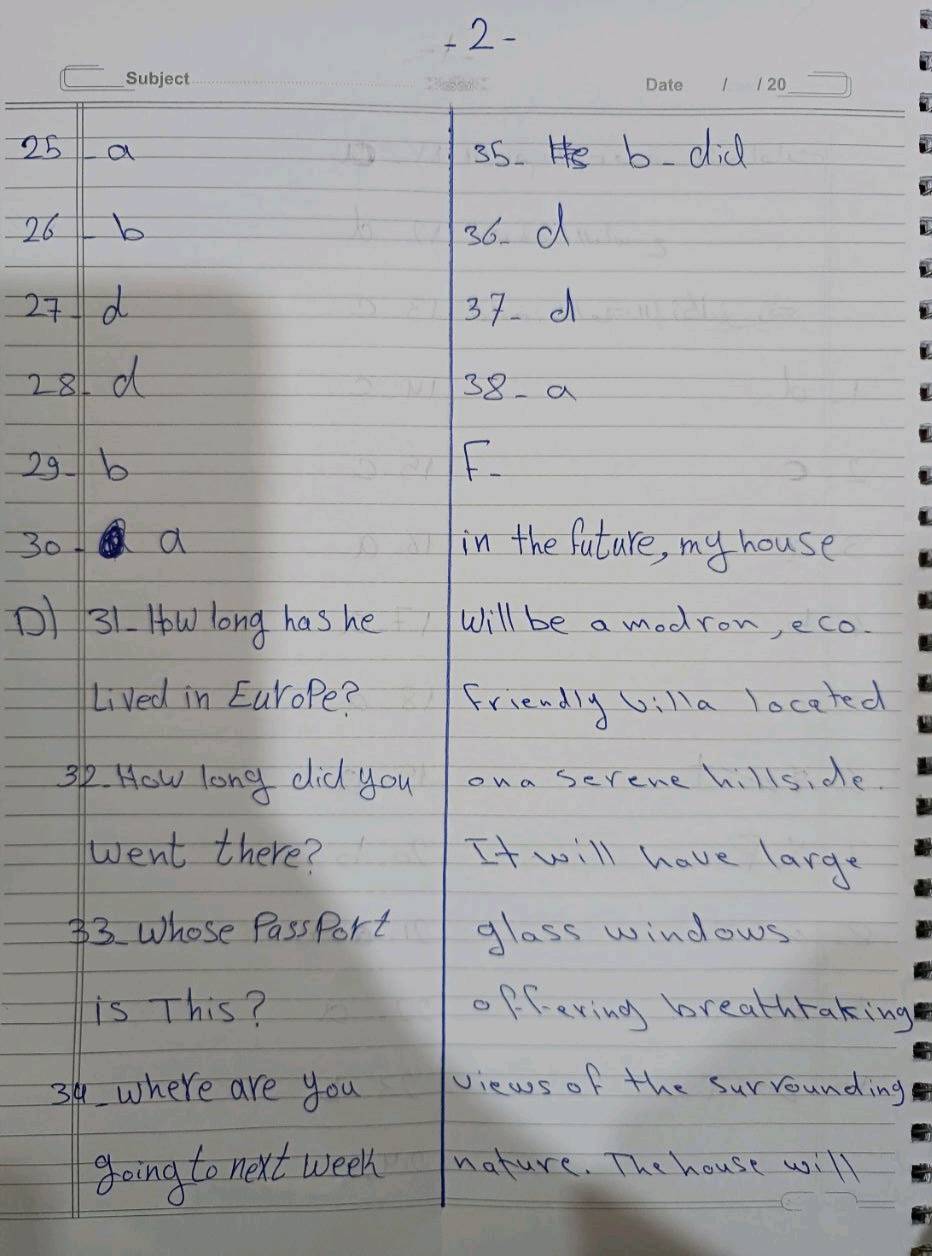 - 2 -
Subject
Date / / 20
25 - a
26 - b
27 - d
28 - d
29 - b
30 - a
D) 31 - How long has he
Lived in Europe?
32. How long did you
went there?
33 - Whose PassPort
is This?
34 - where are you
going to next week
35 - b - did
36 - d
37 - d
38 - a
F -
in the future, my house
Will be a modron, eco.
friendly villa located
on a serene hillside.
It will have large
glass windows
offering breathtaking
views of the surrounding
nature. The house will